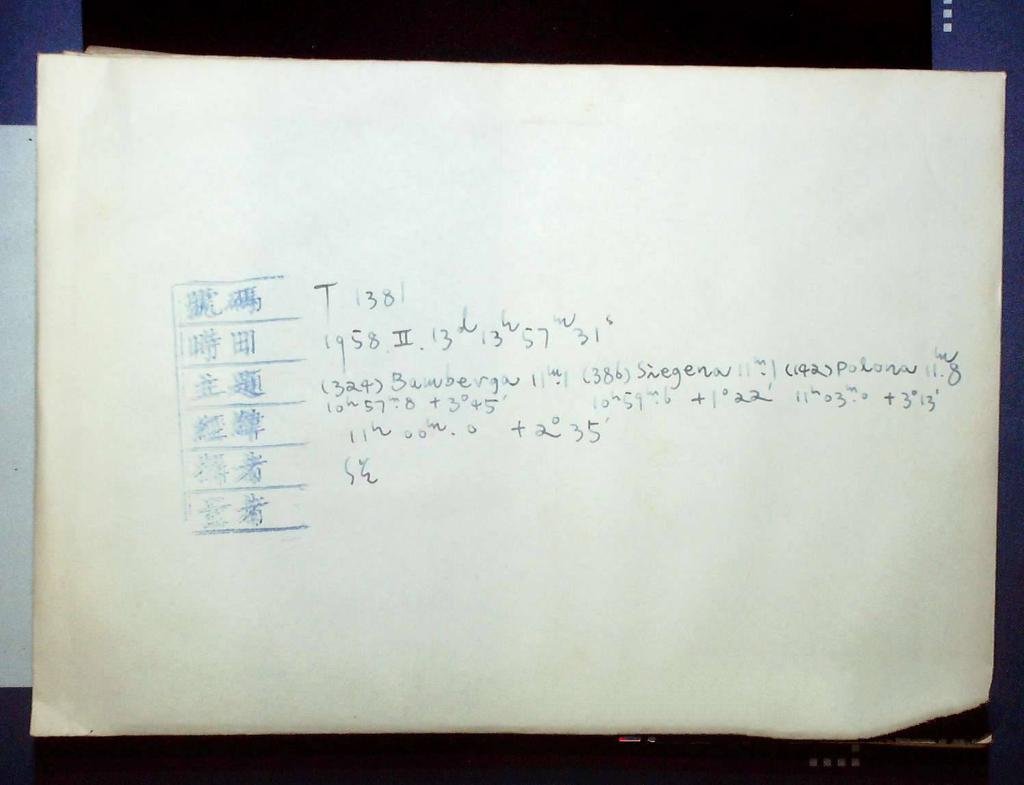 號碼 T 1381
時間 1958. II. 13ᵈ 13ʰ 57ᵐ 31ˢ
主題 (324) Bamberga 11ᵐ.1 (386) Siegena 11ᵐ.1 (142) Polona 11ᵐ.8
10ʰ 57ᵐ.8 +3°45′ 10ʰ 59ᵐ.6 +1°22′ 11ʰ 03ᵐ.0 +3°13′
經緯 11ʰ 00ᵐ.0 +2°35′
攝者
量者